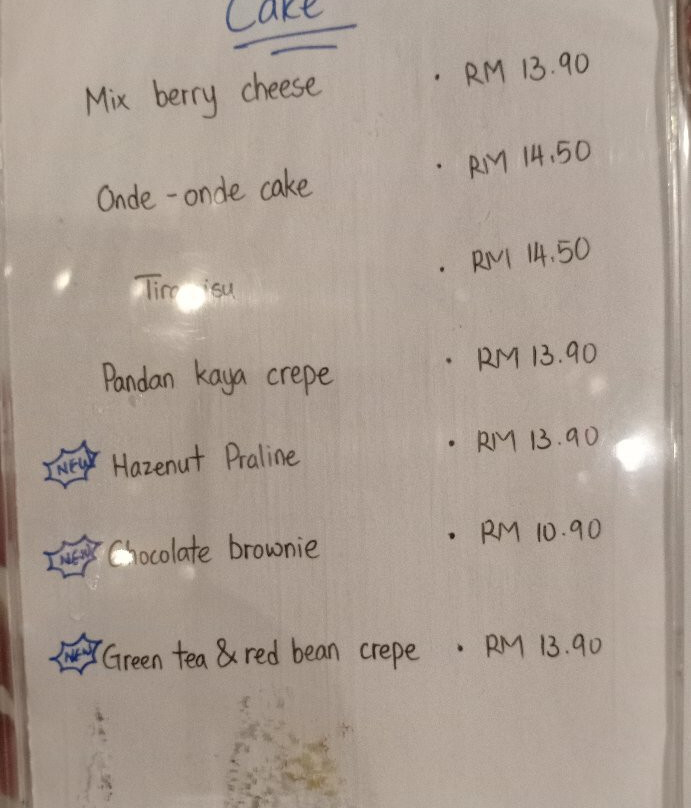 Cake
Mix berry cheese . RM 13.90
Onde-onde cake . RM 14.50
Tiramisu . RM 14.50
Pandan kaya crepe . RM 13.90
NEW Hazenut Praline . RM 13.90
NEW Chocolate brownie . RM 10.90
NEW Green tea & red bean crepe . RM 13.90